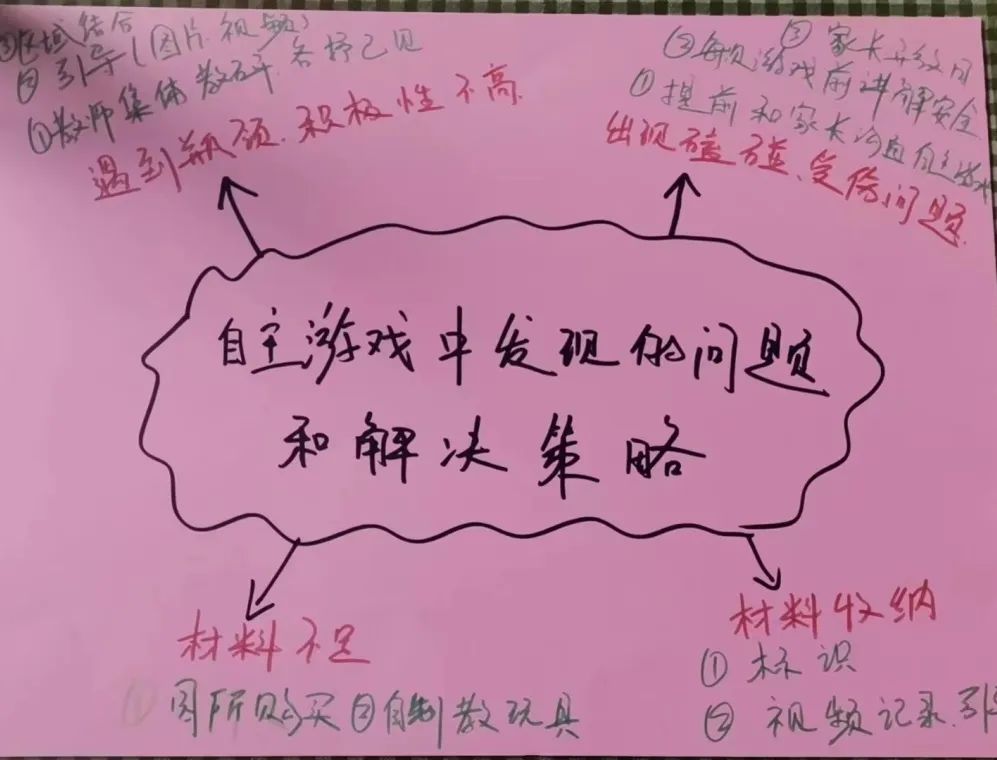 ③区域结合
②引导(图片.视频)
①教师集体教研.各抒己见
遇到瓶颈.积极性不高
③家长开放日
②每项游戏前讲解安全
①提前和家长沟通自主游戏
出现磕碰、受伤问题.
自主游戏中发现的问题
和解决策略
材料不足
①园所购买②自制散玩具
材料收纳
①标识
②视频记录.引